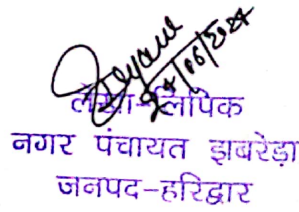 24/06/2024
लेखा-लिपिक
नगर पंचायत झबरेड़ा
जनपद-हरिद्वार